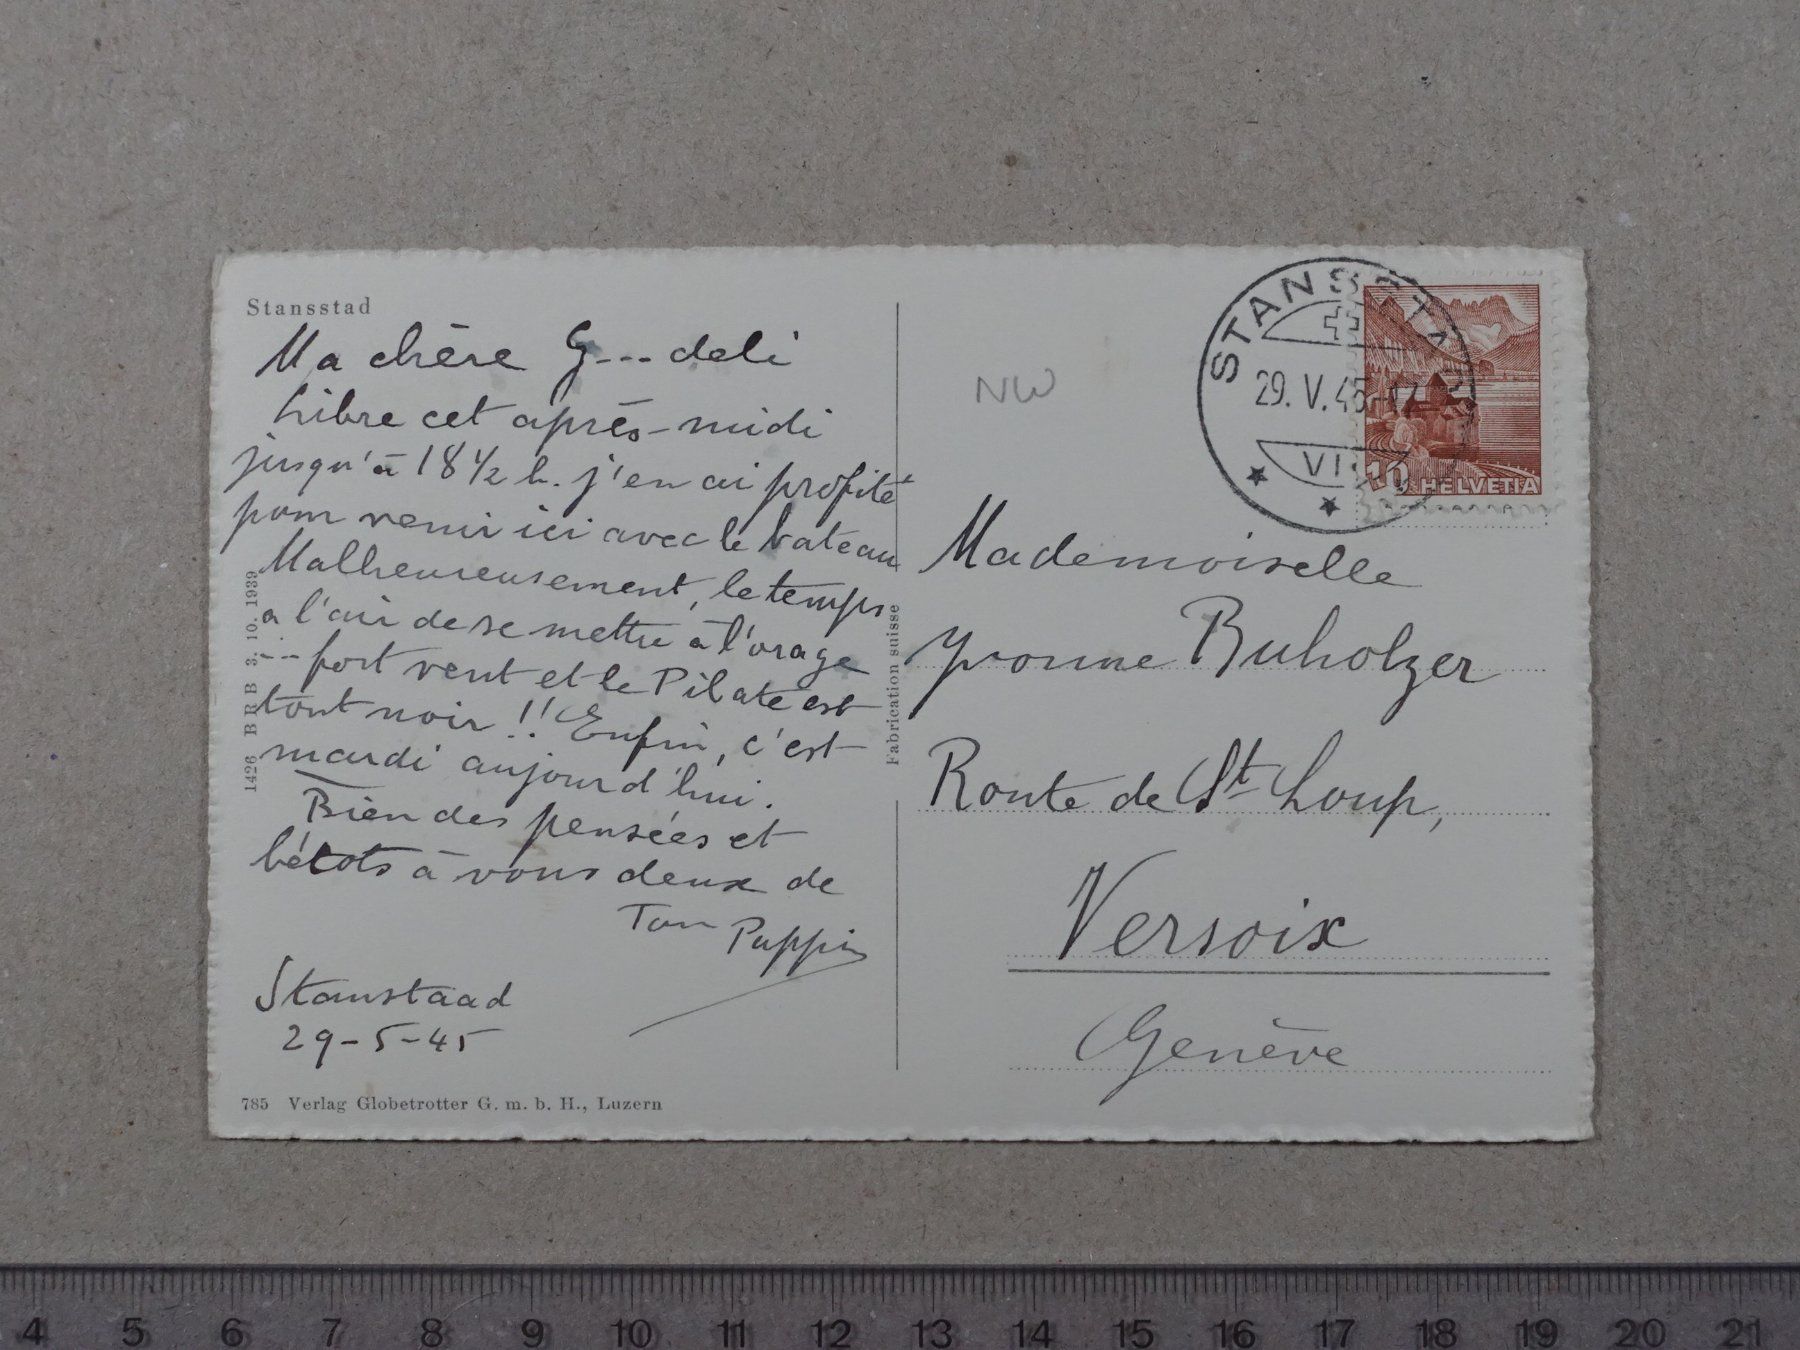 Stansstad
Ma chère G---deli
Libre cet après-midi
jusqu'à 18 1/2 h. j'en ai profité
pour venir ici avec le bateau
Malheureusement, le temps
a l'air de se mettre à l'orage
... fort vent et le Pilate est
tout noir !! Enfin, c'est
mardi aujourd'hui.
Bien des pensées et
bécots à vous deux de
Ton Puppin
Stanstaad
29-5-45
785 Verlag Globetrotter G. m. b. H., Luzern
1426 BRB 3. 10. 1939
Fabrication suisse
NW
STANSSTAD
29. V. 45-17
VI
10 HELVETIA
Mademoiselle
Yvonne Buholzer
Route de St-Loup,
Versoix
Genève
4 5 6 7 8 9 10 11 12 13 14 15 16 17 18 19 20 21